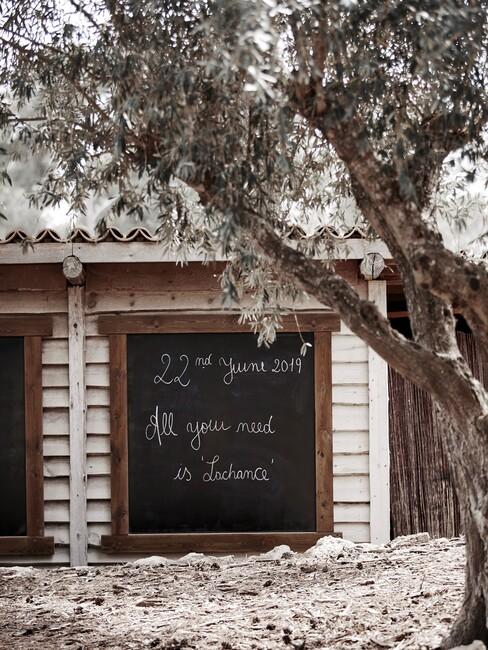 22nd Yuine 2019
All you need
is 'Lachance'